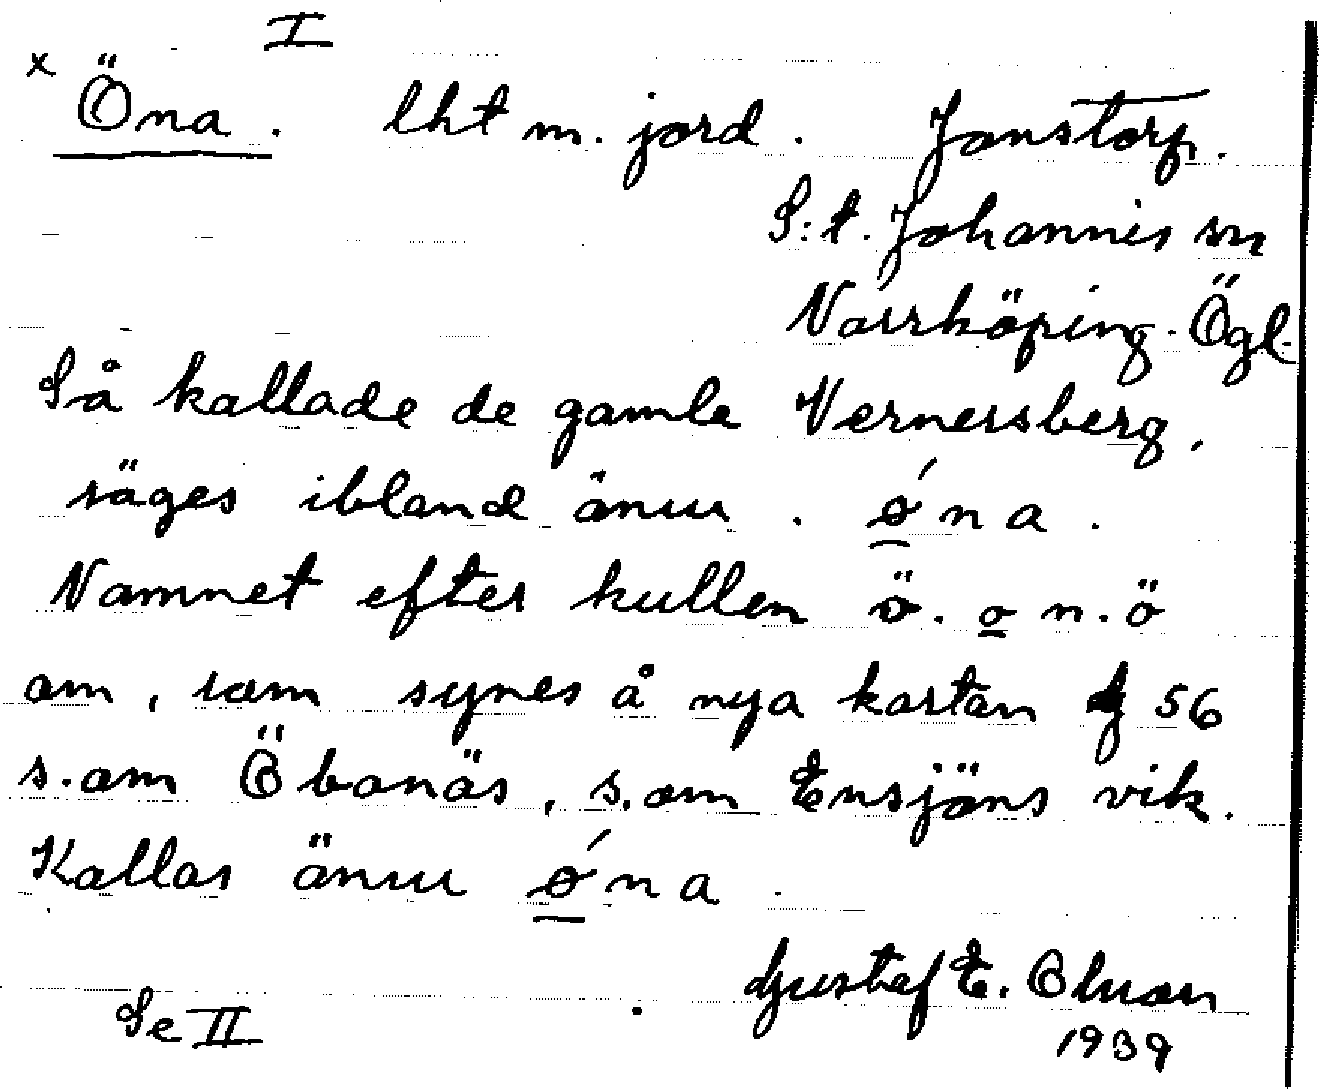 I
x Öna. lht m. jord. Jonstorp.
S:t. Johannis sn
Norrköping. Ögl.
Så kallade de gamle Vernersberg,
säges ibland änuu. ǿna.
Namnet efter kullen ö. o n. ö
om, som synes å nya kartan 56
s. om Öbonäs, s. om Ensjöns vik.
Kallas änuu ǿna.
Gustaf E. Olsson
1939
Se II